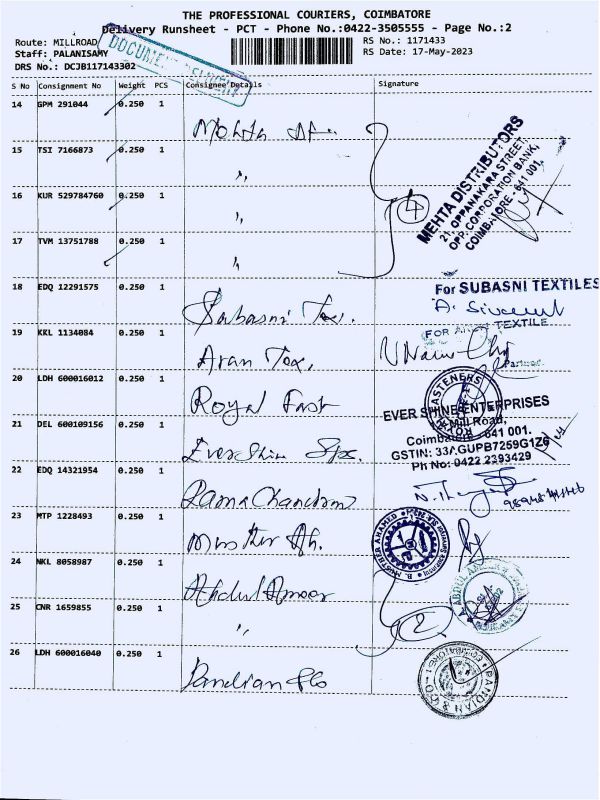 THE PROFESSIONAL COURIERS, COIMBATORE
Delivery Runsheet - PCT - Phone No.:0422-3505555 - Page No.:2
Route: MILLROAD
RS No.: 1171433
Staff: PALANISAMY
RS Date: 17-May-2023
DRS No.: DCJB117143302
DOCUMENT
S No Consignment No Weight PCS Consignee Details Signature
14 GPM 291044 0.250 1
Mehta
MEHTA DISTRIBUTORS
21, OPPANAKARA STREET,
OPP. CORPORATION BANK,
COIMBATORE - 641 001.
15 TSI 7166873 0.250 1
,,
16 KUR 529784760 0.250 1
,,
4
17 TVM 13751788 0.250 1
,,
18 EDQ 12291575 0.250 1
Subasni Tex.
For SUBASNI TEXTILES
19 KKL 1134084 0.250 1
Aran Tex,
FOR TEXTILE
Partner
20 LDH 600016012 0.250 1
Royal Fast
ROYAL FASTENERS
21 DEL 600109156 0.250 1
Ever Shine
EVER SHINE ENTERPRISES
Mill Road,
Coimbatore - 641 001.
GSTIN: 33AGUPB7259G1Z6
Ph No: 0422 2393429
22 EDQ 14321954 0.250 1
Rama Chandran
23 MTP 1228493 0.250 1
B. MUSTHER AHAMED
24 NKL 8058987 0.250 1
Abdul Ameer
25 CNR 1659855 0.250 1
,,
2
26 LDH 600016040 0.250 1
Pandian &Co
PANDIAN & CO
COIMBATORE-1